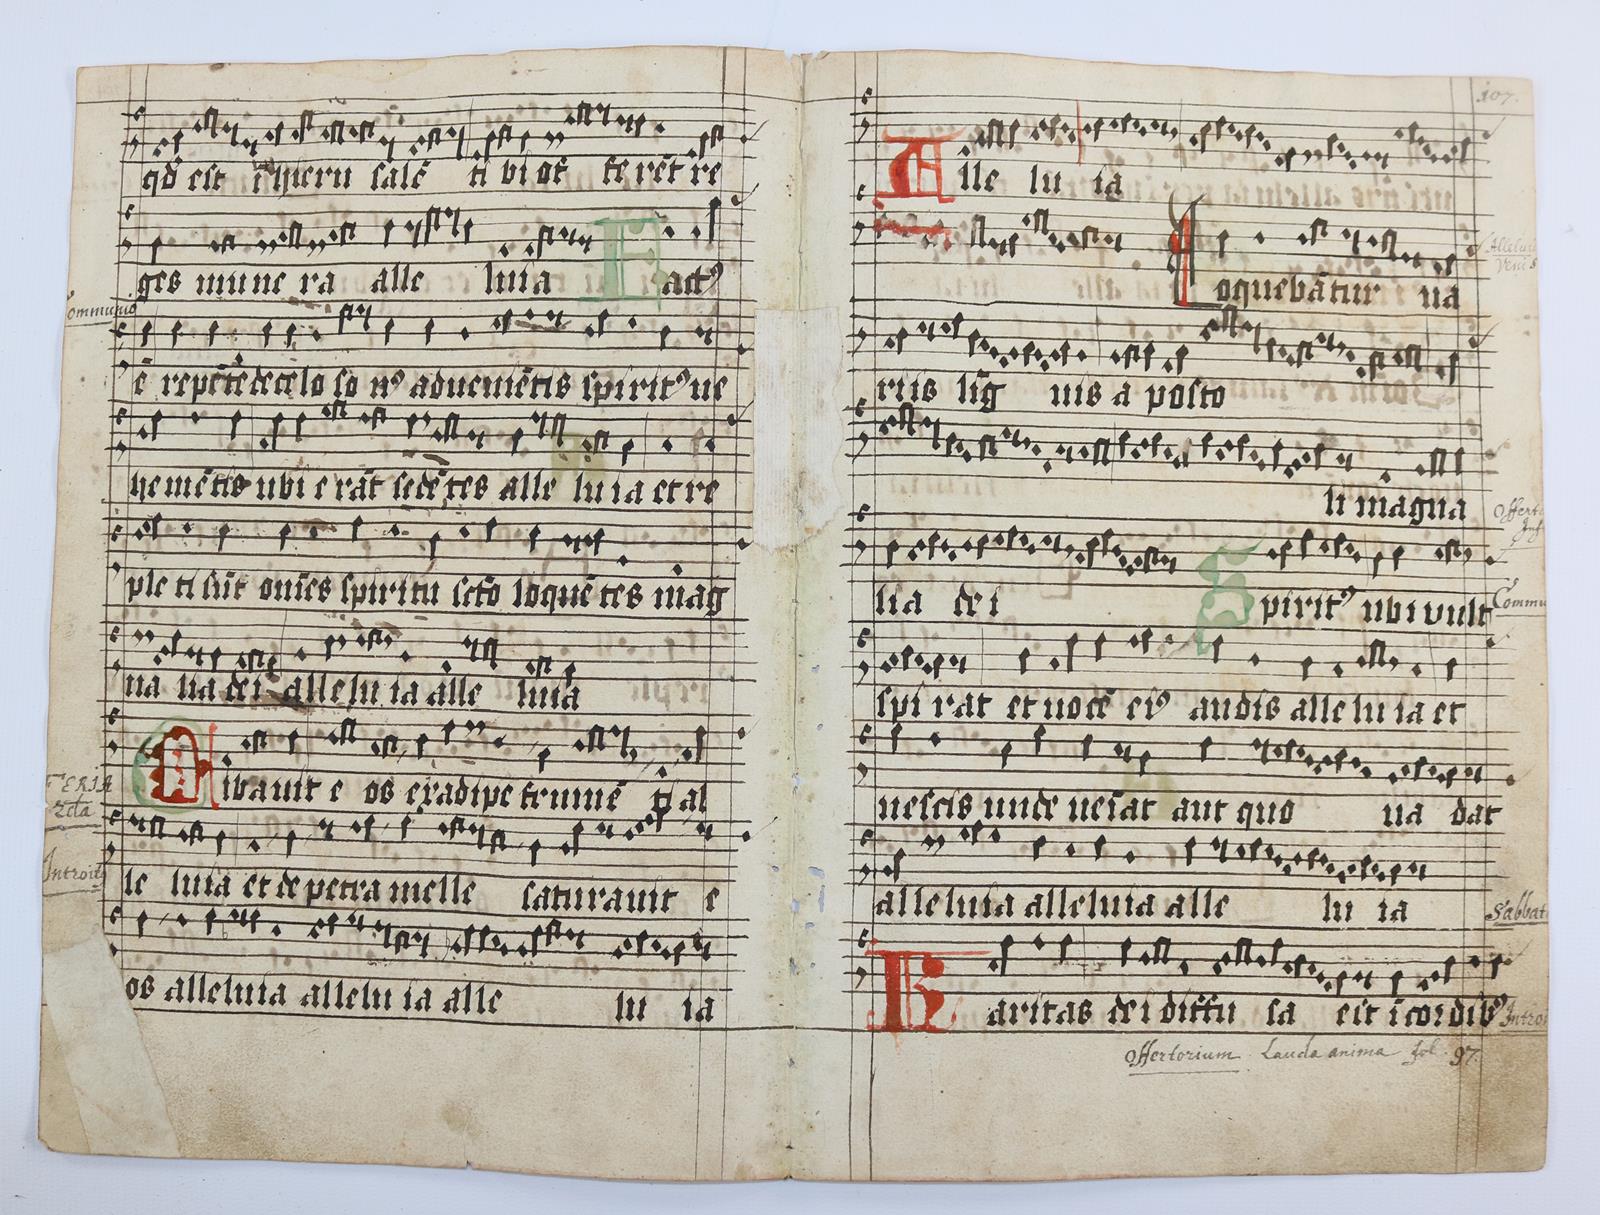 qd̄ est ī hieru salē ti bi of fe rēt re
ges mune ra alle luia Fact⁹
Communio
ē repētē de celo so n⁹ adveniētis spirit⁹ ve
hemētis ubi e rāt sedē tes alle lu ia et re
ple ti sūt omēs spiritu scto loquē tes mag
na lia dei alle lu ia alle luia
FERIA
Cibavit e os ex adipe frumē ti al
Introit⁹
le luia et de petra melle saturavit e
os alleluia allelu ia alle lu ia
107.
Alle lu ia
Alleluia
Veni S
Loquebātur va
riis lig nis a posto
li magna
Offert
lia dei Spirit⁹ ubi vult
Commu
spi rat et vocē ei⁹ audis alle lu ia et
nescis unde veīat aut quo va dat
alleluia alleluia alle lu ia
Sabbat
Karitas dei diffu sa est ī cordib⁹
Introi
Offertorium Lauda anima fol. 97.